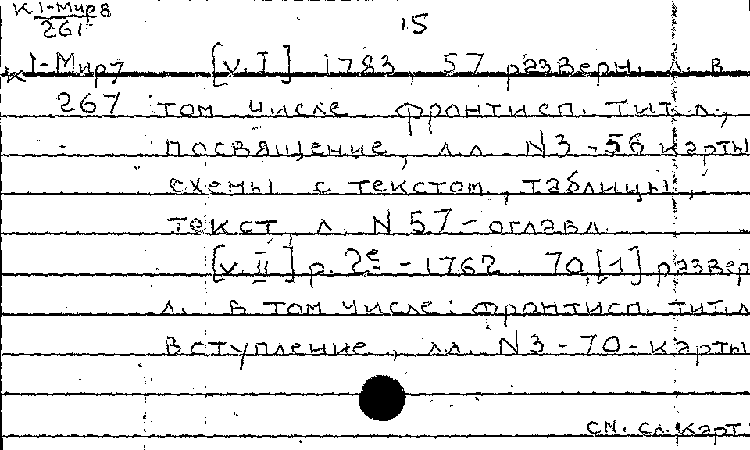 К 1-Мир8 15
261
К 1-Мир7 [v. I] 1783. 57 разверн. л. в
267 том числе фронтисп. тит. л.,
посвящение, л.л. N3-56 карты
схемы с текстом, таблицы,
текст, л. N57 - оглавл.
[v. II] p. 2e - 1762. 70,[1] развер
л. в том числе: фронтисп. тит. л
вступление, лл. N3-70-карты
см. сл. карт